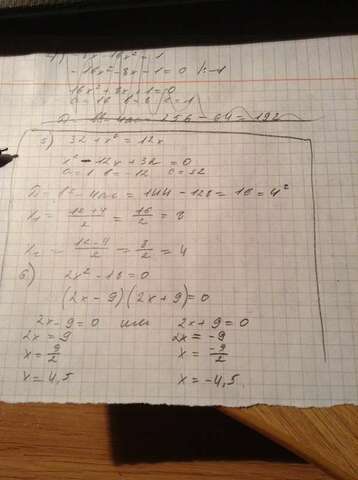 - 16x² - 8x - 1 = 0 |: -1
16x² + 8x + 1 = 0
a = 16 b = 8 c = 1
256 - 64 = 192
5) 32 + x² = 12x
x² - 12x + 32 = 0
a = 1 b = -12 c = 32
D = b² - 4ac = 144 - 128 = 16 = 4²
x₁ = (12+4)/2 = 16/2 = 8
x₂ = (12-4)/2 = 8/2 = 4
6) 2x² - 18 = 0
(2x - 9)(2x + 9) = 0
2x - 9 = 0 или 2x + 9 = 0
2x = 9 2x = -9
x = 9/2 x = -9/2
x = 4,5 x = -4,5